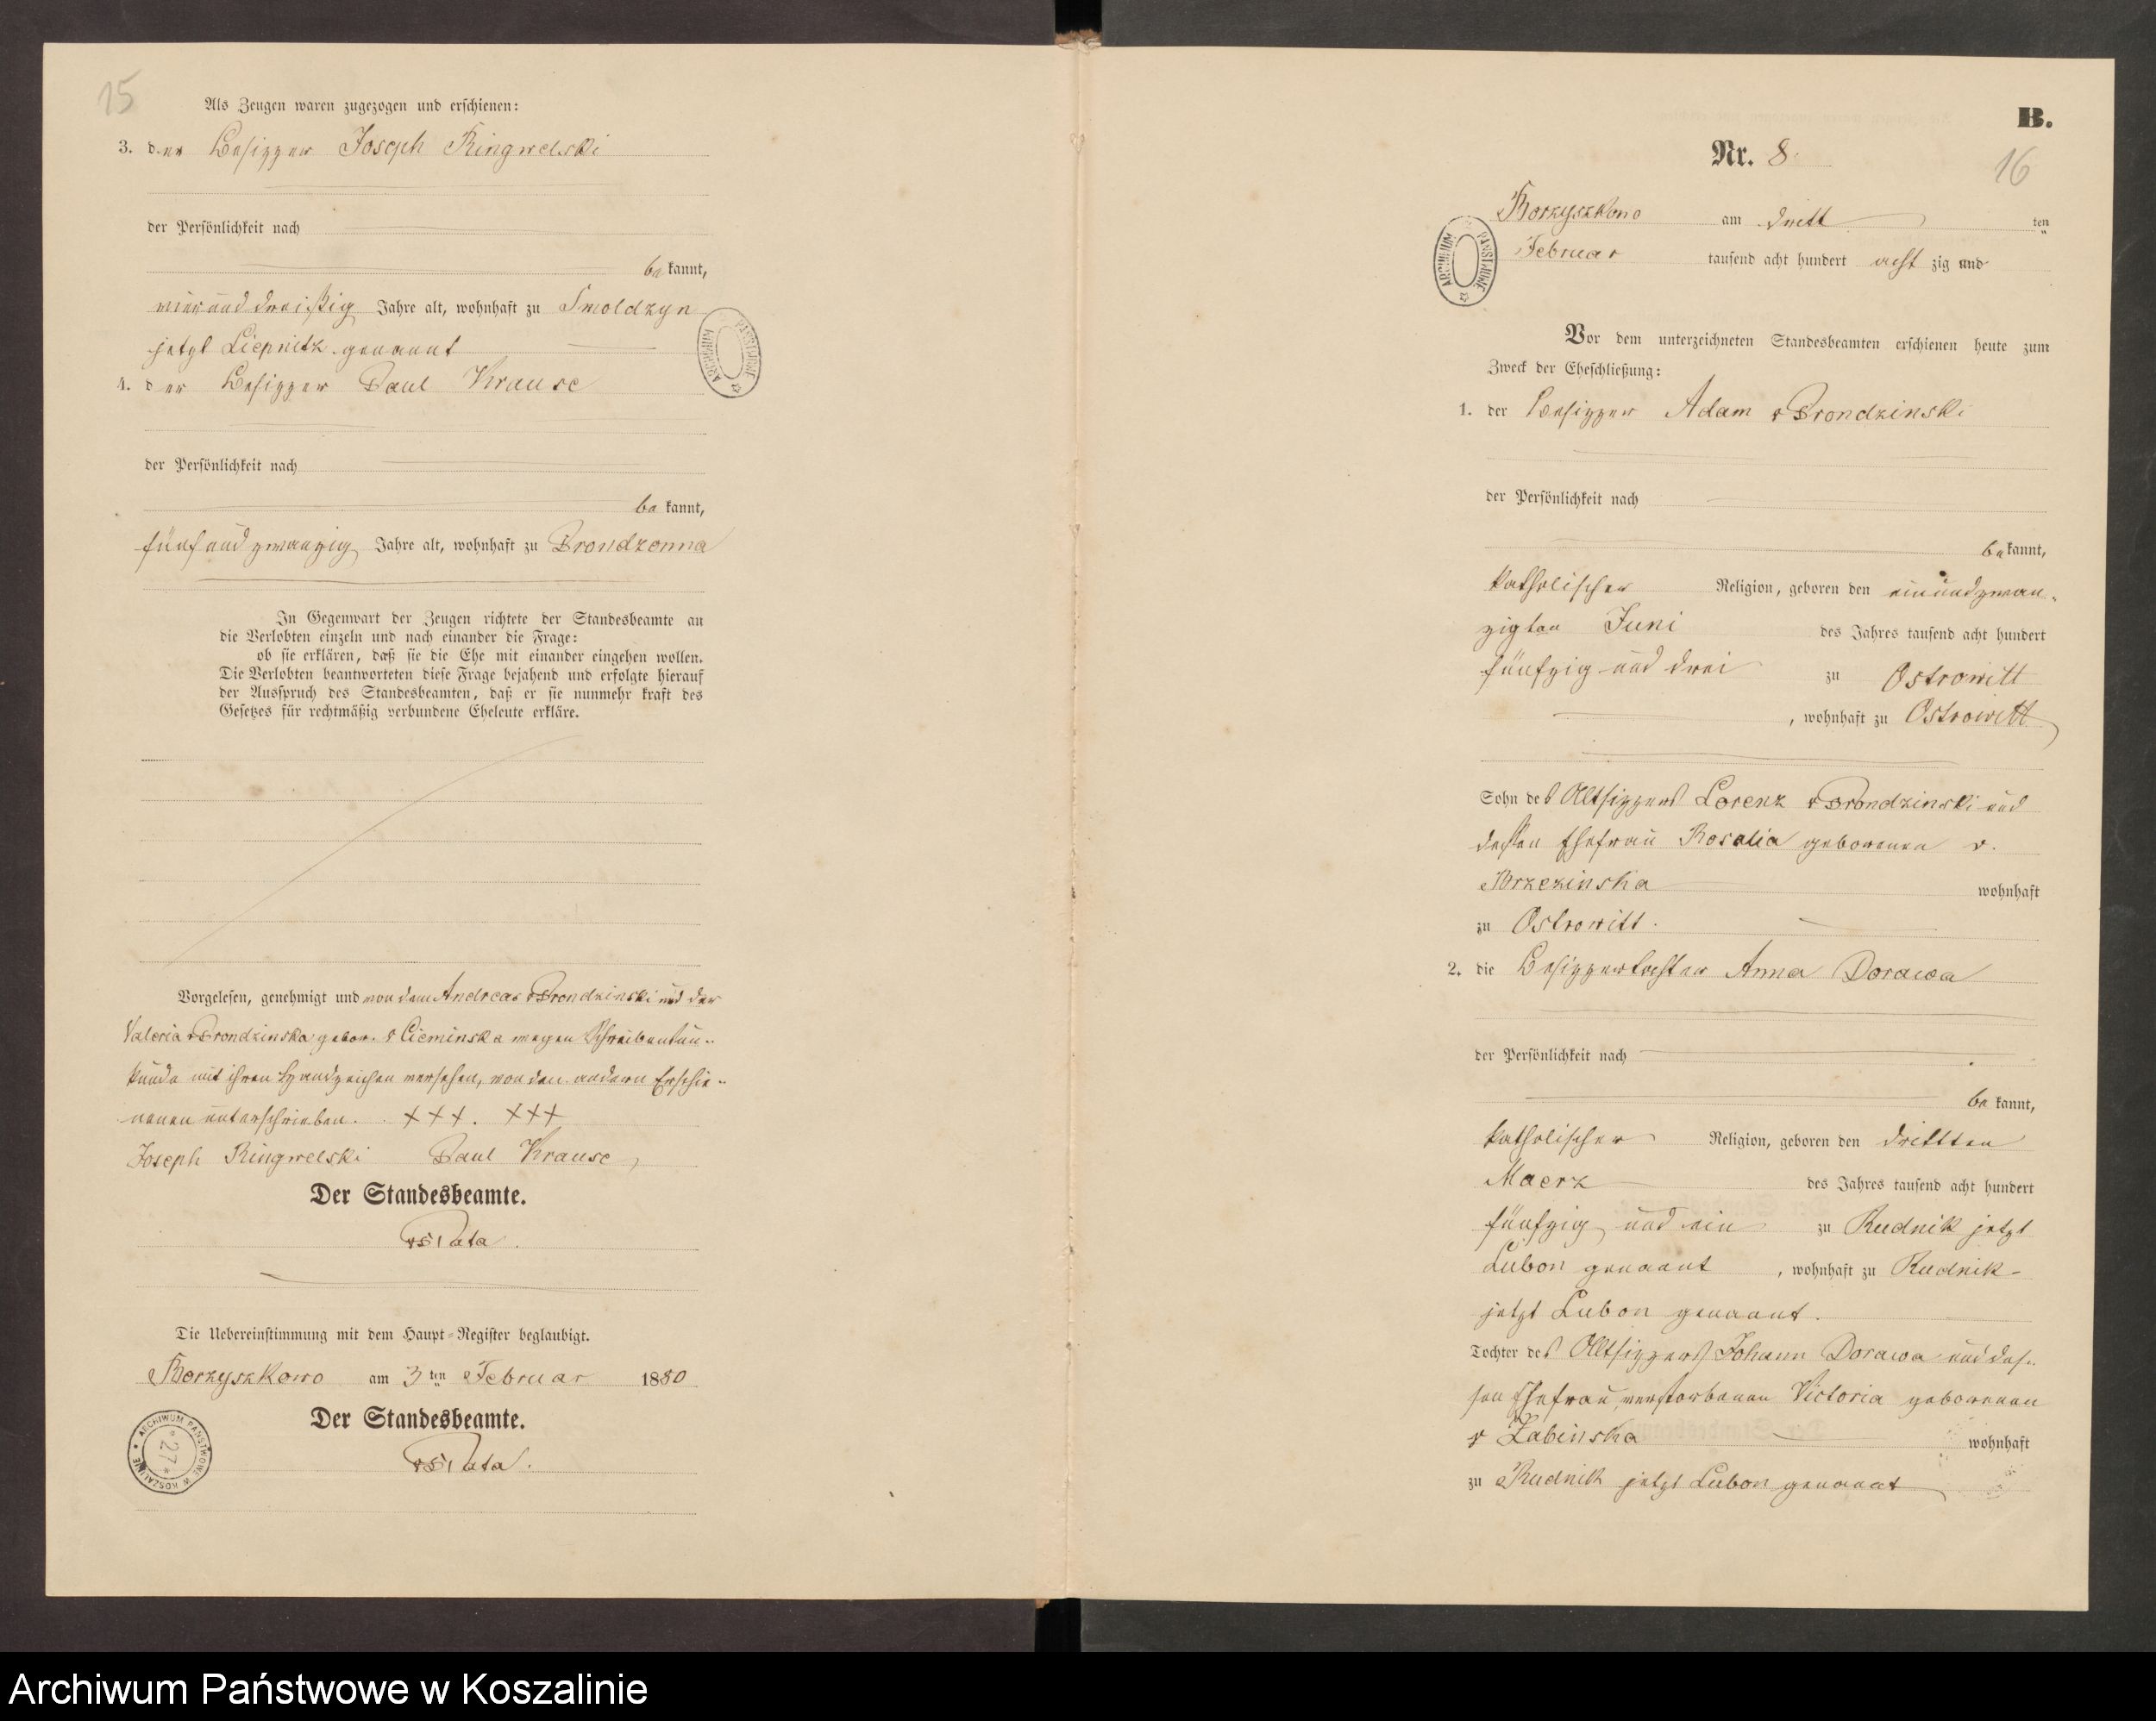 15
Als Zeugen waren zugezogen und erschienen:
3. der Besitzer Joseph Ringwelski
der Persönlichkeit nach
bekannt,
vierunddreißig Jahre alt, wohnhaft zu Smoldzyn
jetzt Liepnitz genannt
4. der Besitzer Paul Krause
der Persönlichkeit nach
bekannt,
fünfundzwanzig Jahre alt, wohnhaft zu Prondzonna
In Gegenwart der Zeugen richtete der Standesbeamte an
die Verlobten einzeln und nach einander die Frage:
ob sie erklären, daß sie die Ehe mit einander eingehen wollen.
Die Verlobten beantworteten diese Frage bejahend und erfolgte hierauf
der Ausspruch des Standesbeamten, daß er sie nunmehr kraft des
Gesetzes für rechtmäßig verbundene Eheleute erkläre.
Vorgelesen, genehmigt und von dem Andreas v Prondzinski und der
Valeria v Prondzinska gebor. v Cieminska wegen Schreibensun-
kunde mit ihren Handzeichen versehen, von den andern Erschie-
nenen unterschrieben. +++. +++
Joseph Ringwelski Paul Krause
Der Standesbeamte.
Die Uebereinstimmung mit dem Haupt-Register beglaubigt.
Borzyszkowo am 3ten Februar 1880
Der Standesbeamte.
ARCHIWUM PAŃSTWOWE W KOSZALINIE
* 27 *
ARCHIWUM PAŃSTWOWE
B.
Nr. 8.
16
Borzyszkowo am dritt ten
Februar tausend acht hundert acht zig und
ARCHIWUM PAŃSTWOWE
Vor dem unterzeichneten Standesbeamten erschienen heute zum
Zweck der Eheschließung:
1. der Besitzer Adam v Prondzinski
der Persönlichkeit nach
bekannt,
katholischer Religion, geboren den einundzwan-
zigten Juni des Jahres tausend acht hundert
fünfzig und drei zu Ostrowitt
, wohnhaft zu Ostrowitt
Sohn des Altsitzers Lorenz v Prondzinski und
dessen Ehefrau Rosalia geborenen v.
Brzezinska wohnhaft
zu Ostrowitt.
2. die Besitzertochter Anna Dorawa
der Persönlichkeit nach
bekannt,
katholischer Religion, geboren den drittten
Maerz des Jahres tausend acht hundert
fünfzig und ein zu Rudnik jetzt
Lubon genannt , wohnhaft zu Rudnik
jetzt Lubon genannt.
Tochter des Altsitzers Johann Dorawa und des-
sen Ehefrau verstorbenen Victoria geborenen
v Zabinska wohnhaft
zu Rudnik jetzt Lubon genannt
Archiwum Państwowe w Koszalinie